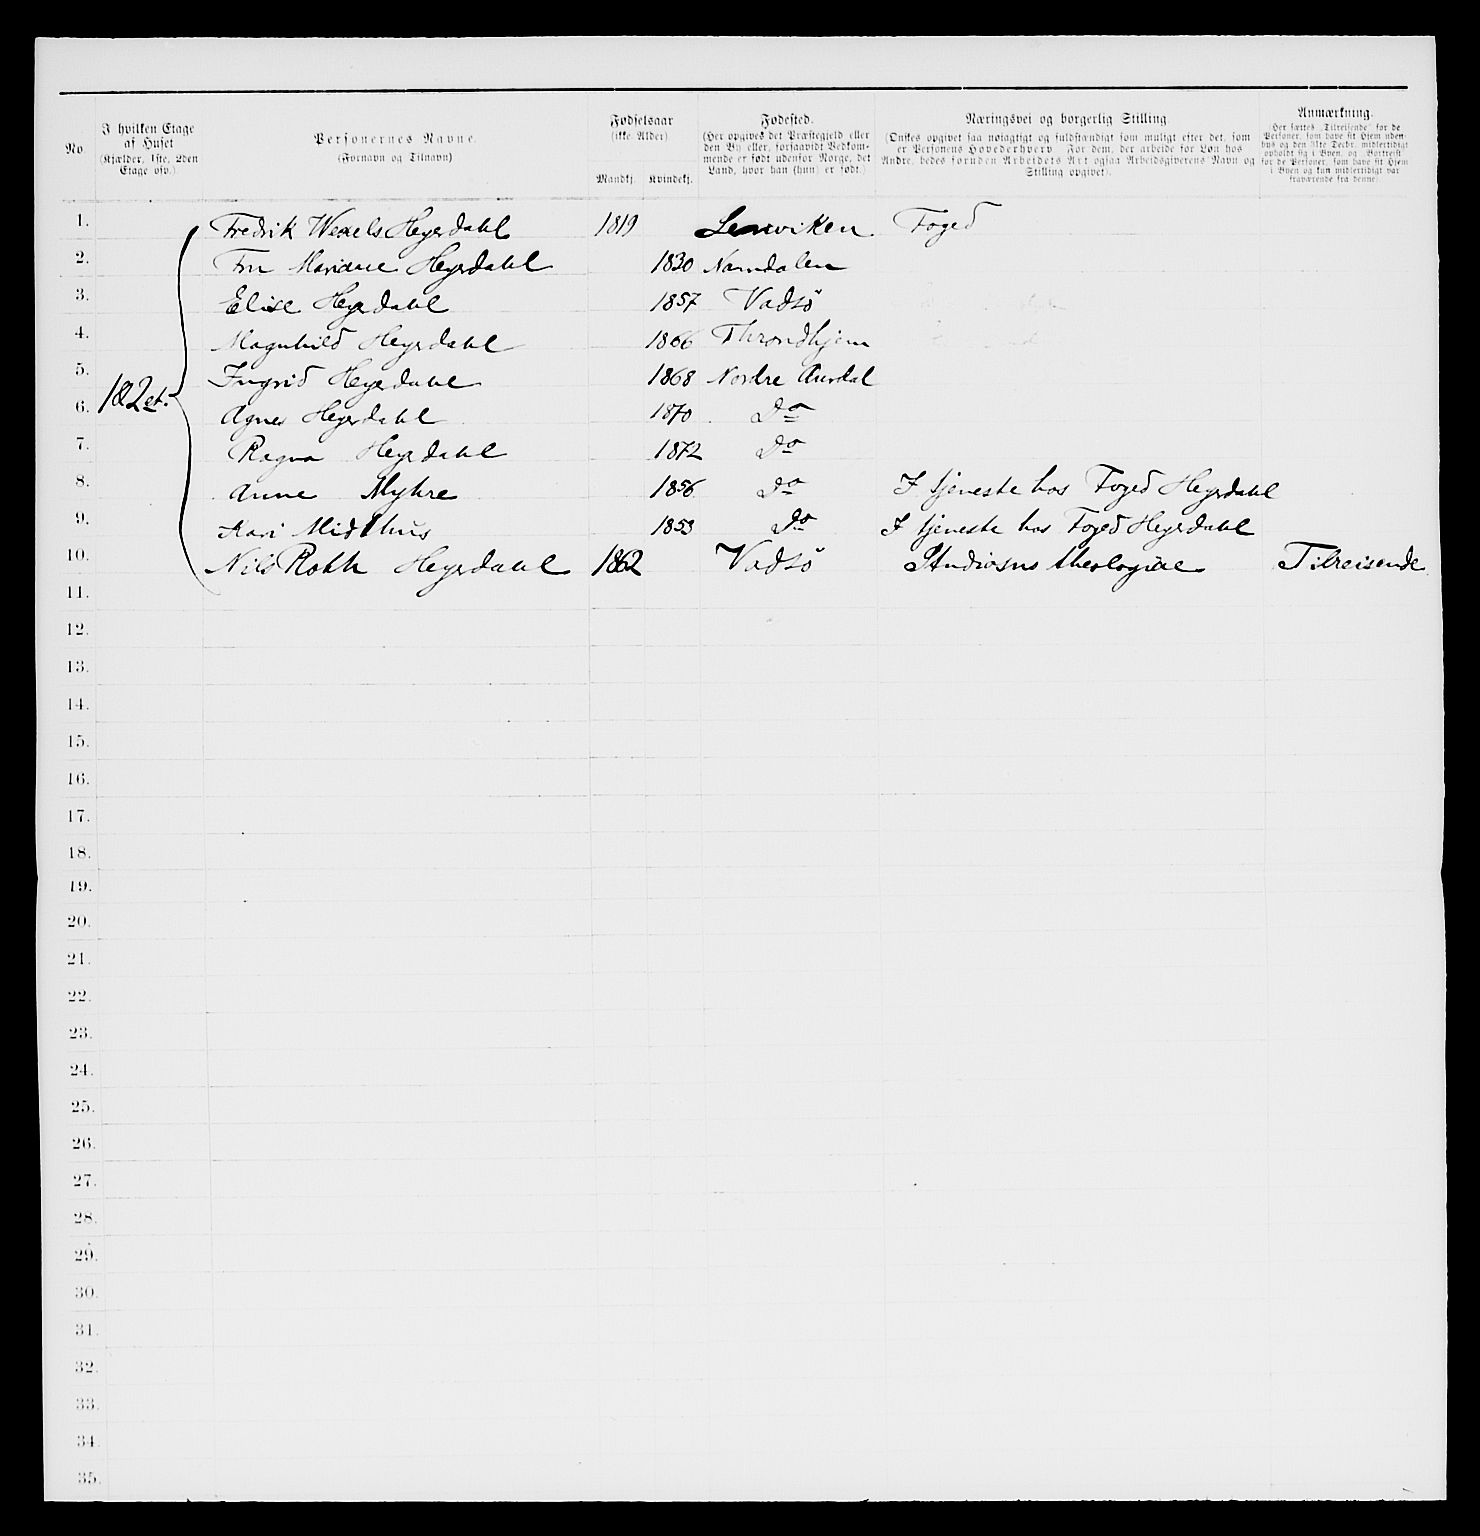 No.
I hvilken Etage
af Huset
(Kjælder, 1ste, 2den
Etage osv.).
Personernes Navne.
(Fornavn og Tilnavn)
Fødselsaar
(ikke Alder)
Mandkj.
Kvindekj.
Fødested.
(Her opgives det Præstegjeld eller
den By eller, forsaavidt Vedkom-
mende er født udenfor Norge, det
Land, hvor han (hun) er født.)
Næringsvei og borgerlig Stilling
(Ønskes opgivet saa nøiagtigt og fuldstændigt som muligt efter det, som
er Personens Hovederhverv For dem, der arbeide for Løn hos
Andre, bedes foruden Arbeidets Art ogsaa Arbeidsgiverens Navn og
Stilling opgivet).
Anmærkning.
(Her sættes „Tilreisende“ for de
Personer, som have sit Hjem uden-
bys og den 31te Decbr. midlertidigt
opholdt sig i Byen, og „Bortreist“
for de Personer, som have sit Hjem
i Byen og kun midlertidigt var
fraværende fra denne).
1. Fredrik Wexels Heyerdahl 1819 Lenviken Foged
2. Fru Mariane Heyerdahl 1830 Namdalen
3. Elise Heyerdahl 1857 Vadsö
4. Magnhild Heyerdahl 1866 Throndhjem
5. Ingrid Heyerdahl 1868 Nordre Aurdal
1&2 et.
6. Agnes Heyerdahl 1870 Do
7. Ragna Heyerdahl 1872 Do
8. Anne Myhre 1856 Do I tjeneste hos Foged Heyerdahl
9. Kari Midthus 1853 Do I tjeneste hos Foged Heyerdahl
10. Nils Rohh Heyerdahl 1862 Vadsö Studiosus theologiae Tilreisende
11.
12.
13.
14.
15.
16.
17.
18.
19.
20.
21.
22.
23.
24.
25.
26.
27.
28.
29.
30.
31.
32.
33.
34.
35.